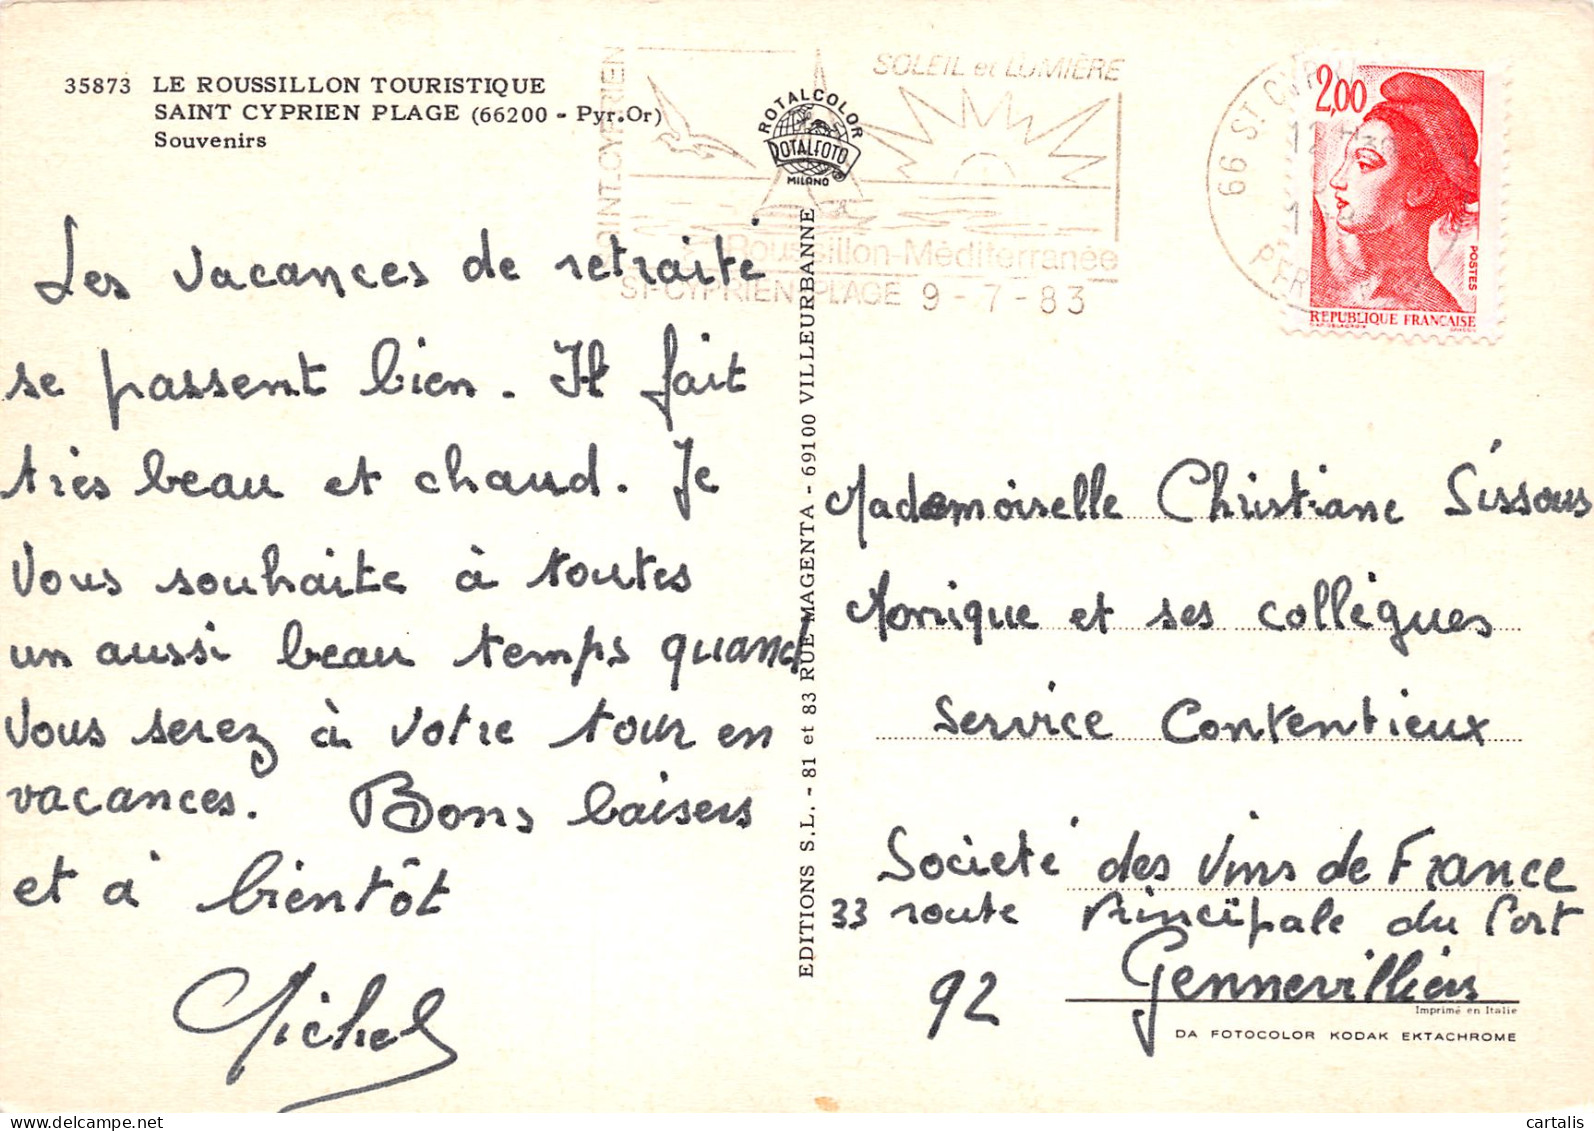 35873 LE ROUSSILLON TOURISTIQUE
SAINT CYPRIEN PLAGE (66200 - Pyr.Or)
Souvenirs
SAINT-CYPRIEN
SOLEIL et LUMIÈRE
Roussillon-Méditerranée
ST-CYPRIEN-PLAGE 9 - 7 - 83
ROTALCOLOR
ROTALFOTO
MILANO
66 ST CYPRIEN
12 H30
2,00
POSTES
REPUBLIQUE FRANÇAISE
Les vacances de retraité
se passent bien. Il fait
très beau et chaud. Je
vous souhaite à toutes
un aussi beau temps quand
vous serez à votre tour en
vacances. Bons baisers
et à bientôt
Michel
EDITIONS S.L. - 81 et 83 RUE MAGENTA - 69100 VILLEURBANNE
Mademoiselle Christiane Sissous
Monique et ses collègues
Service Contentieux
Societé des Vins de France
33 route Principale du Port
92 Gennevilliers
Imprimé en Italie
DA FOTOCOLOR KODAK EKTACHROME
cartalis
delcampe.net